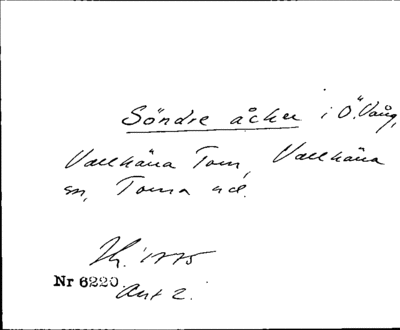 Söndre åker i Ö. Vång,
Vallkärra Torn, Vallkärra
sn, Torna hd.
Nr 6220.
Akt 2.